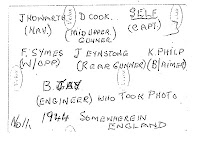 J HOWARTH D COOK.. SELF
(NAV.) (MID UPPER GUNNER) (CAPT.)
F. SYMES J EYNSTONE K. PHILP
(W/OPP) (REAR GUNNER) (B/AIMER)
B. JAY
(ENGINEER) WHO TOOK PHOTO
1944 SOMEWHERE IN
ENGLAND